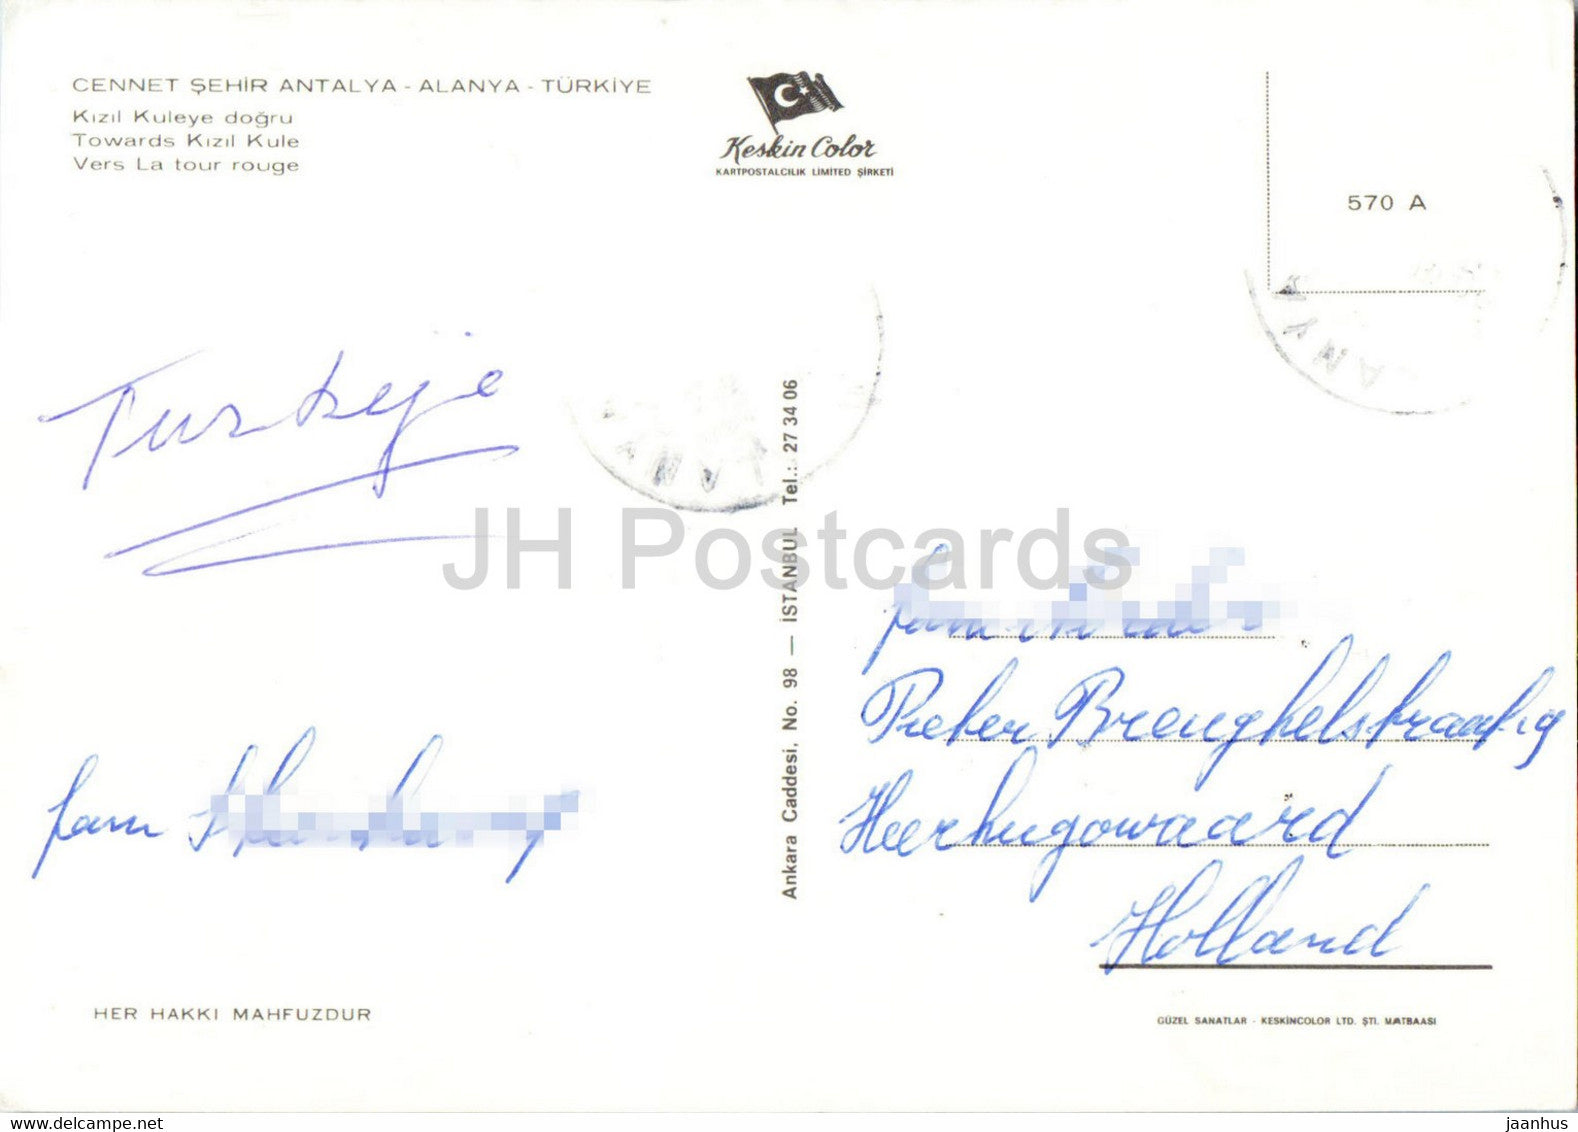 CENNET ŞEHİR ANTALYA - ALANYA - TÜRKİYE
Kızıl Kuleye doğru
Towards Kızıl Kule
Vers La tour rouge
Keskin Color
KARTPOSTALCILIK LIMITED ŞİRKETİ
570 A
LANYA
LANYA
Turkeije
Ankara Caddesi, No. 98 — İSTANBUL Tel.: 27 34 06
JH Postcards
fam
Pieter Breughelstraat 19
Heerhugowaard
Holland
fam
HER HAKKI MAHFUZDUR
GÜZEL SANATLAR - KESKİNCOLOR LTD. ŞTİ. MATBAASI
delcampe.net
jaanhus